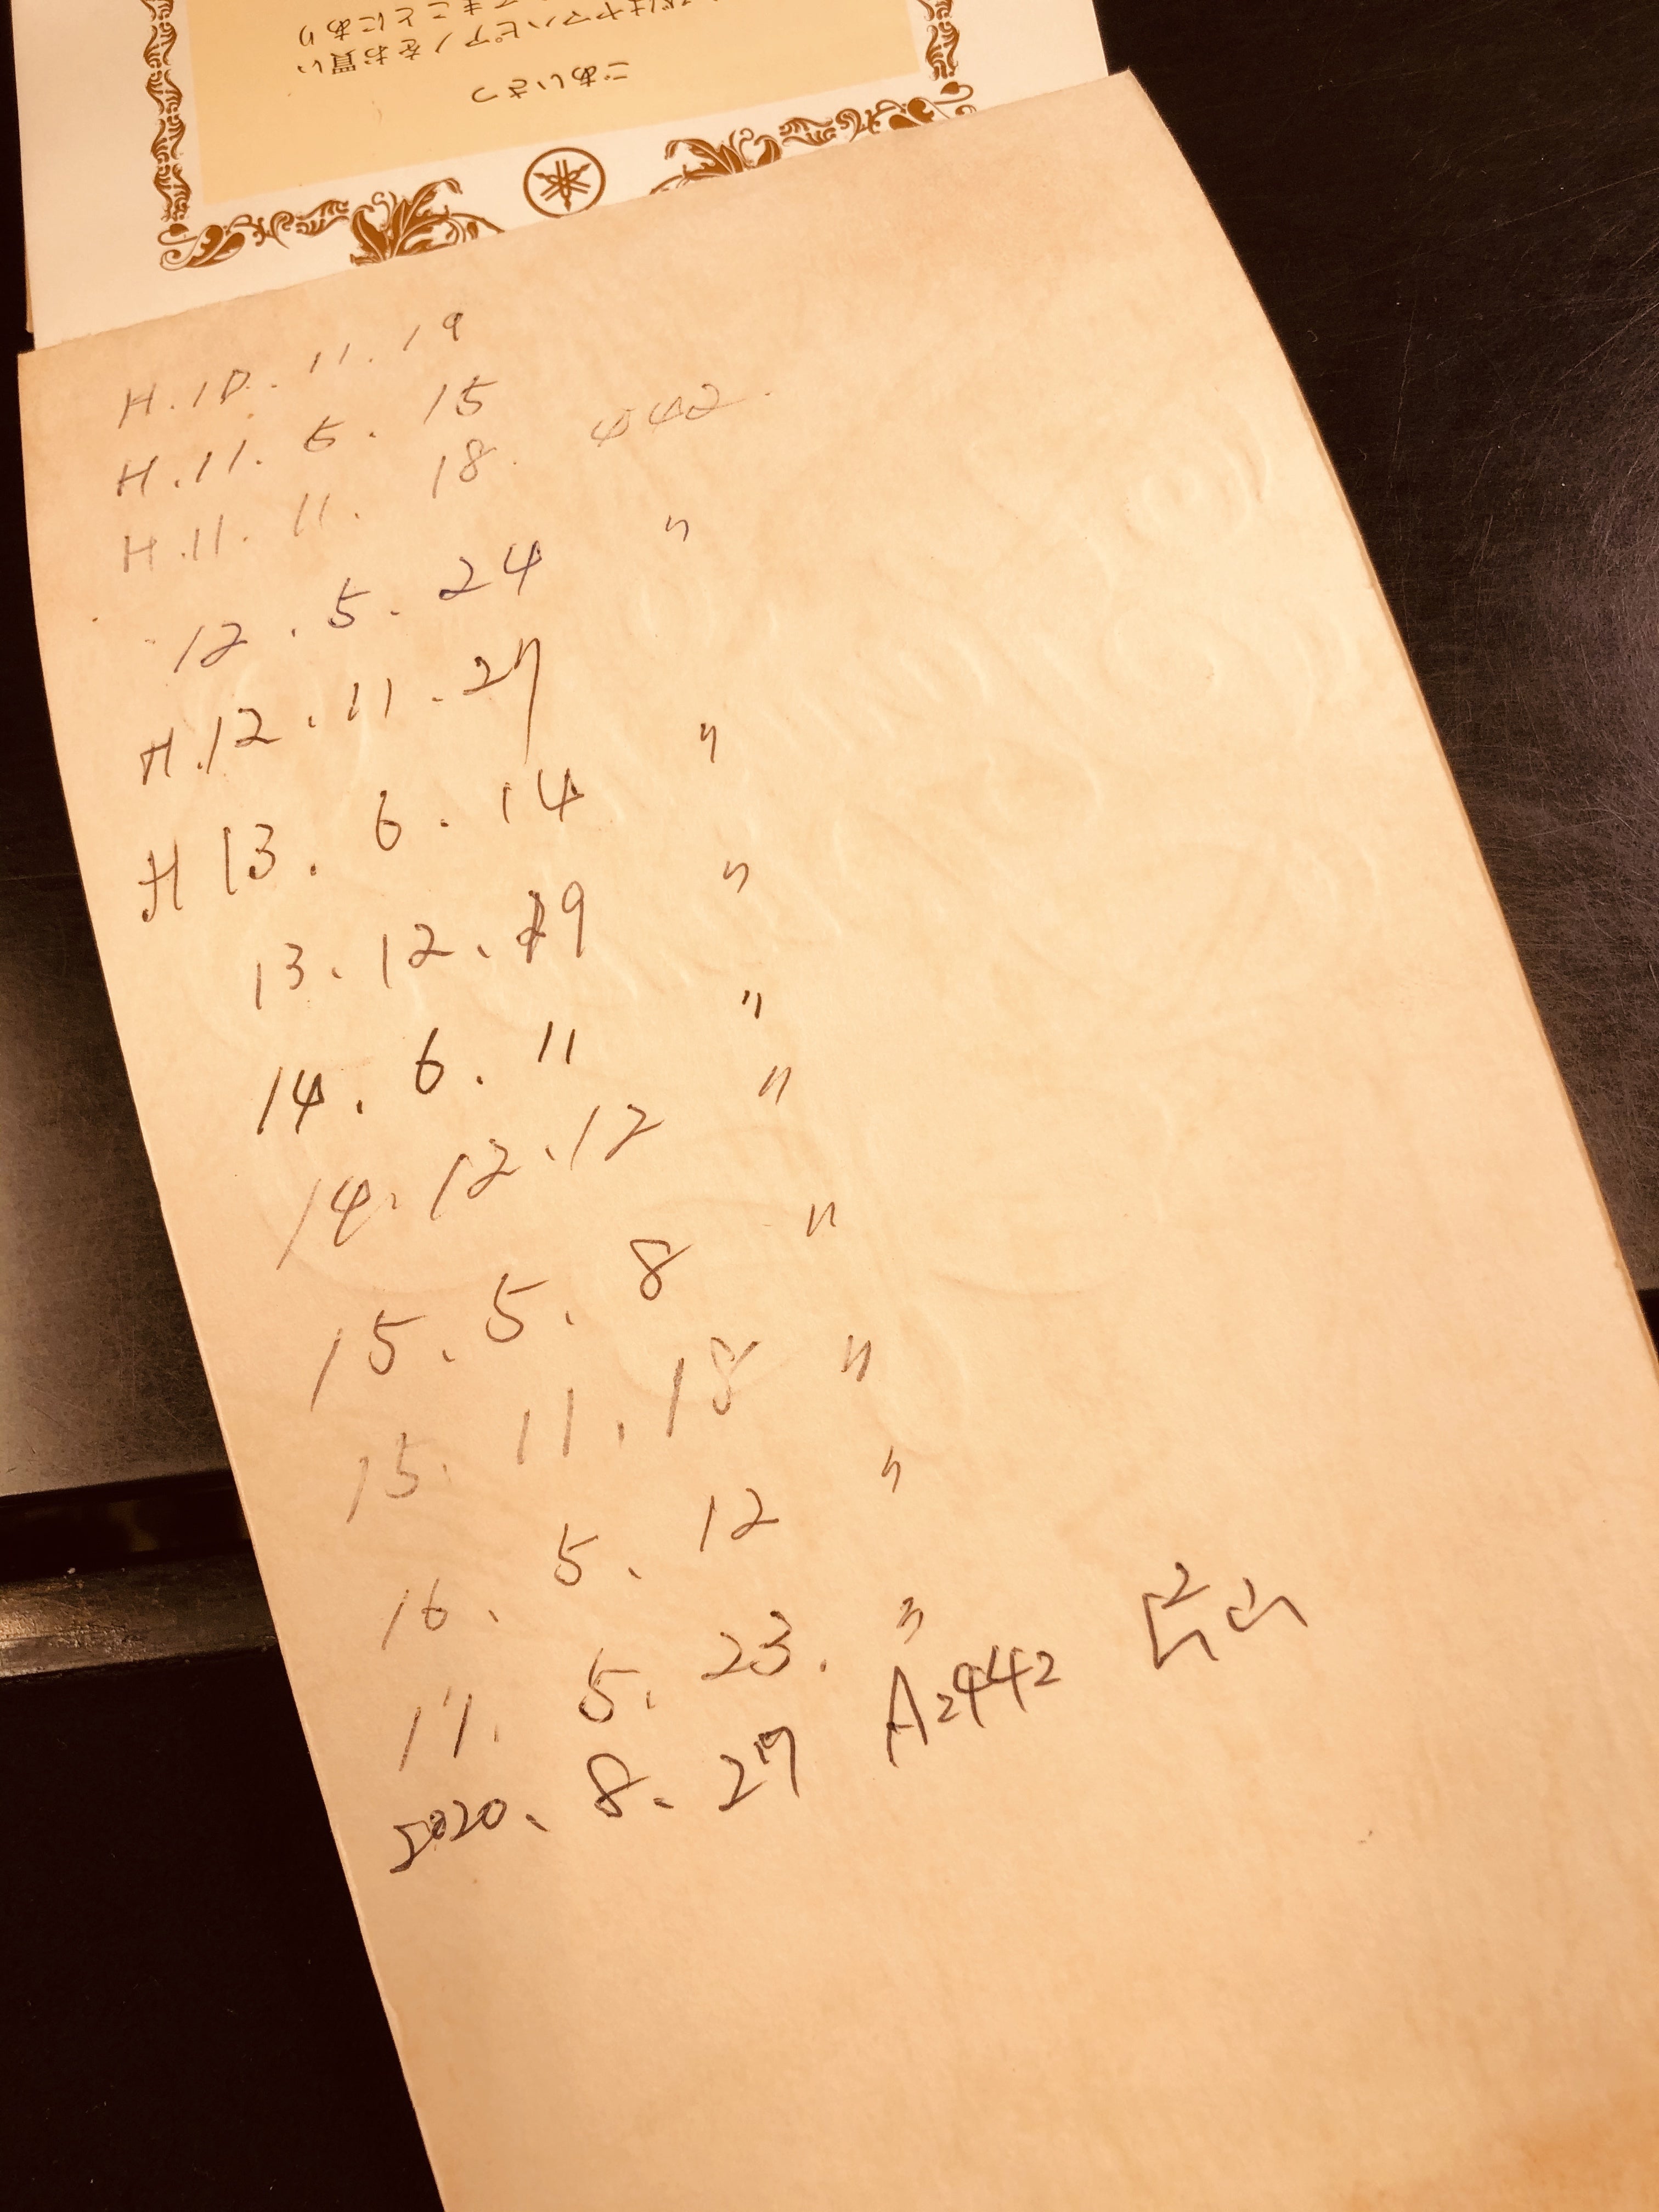 ごあいさつ
はヤマハピアノをお買い
まことにあり
H.10.11.19
H.11.5.15
H.11.11.18. 442.
12.5.24 〃
H.12.11.27
H 13.6.14 〃
13.12.19 〃
14.6.11 〃
14.12.12 〃
15.5.8 〃
15.11.18 〃
16.5.12 〃
17.5.23. 〃
2020.8.27 A=442